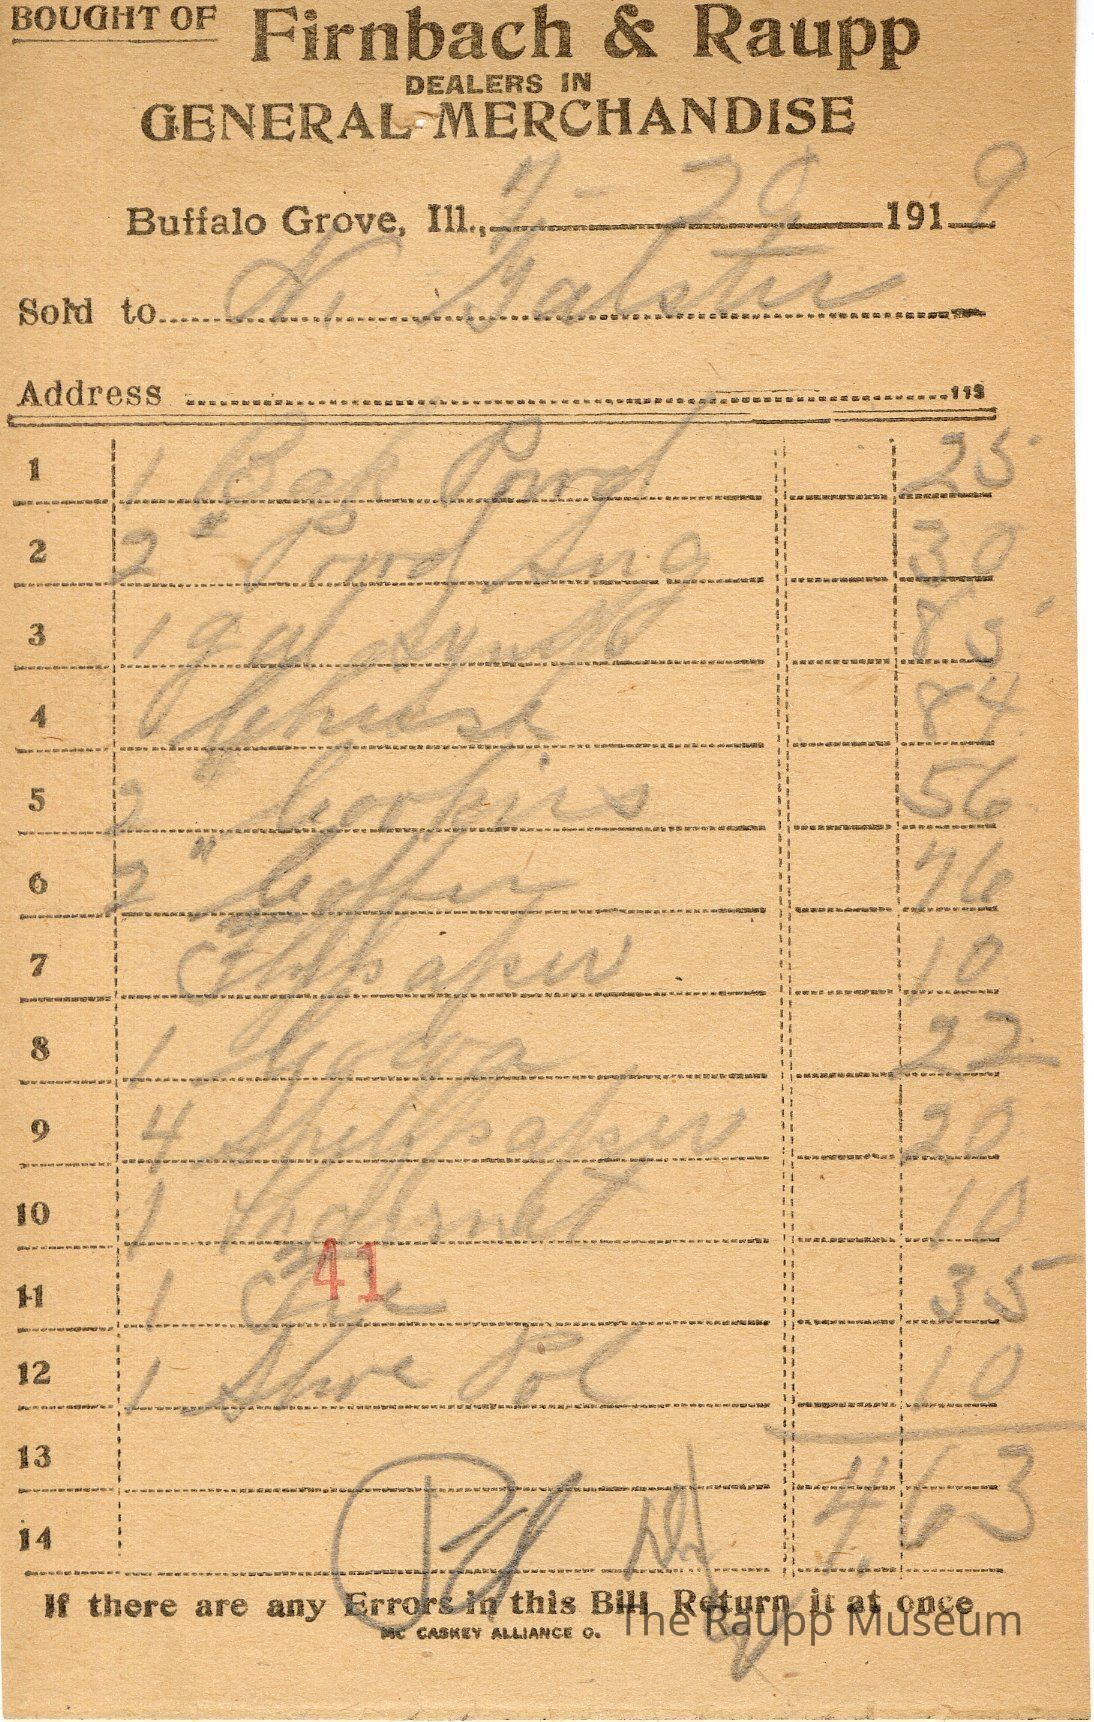 BOUGHT OF Firnbach & Raupp
DEALERS IN
GENERAL MERCHANDISE
Buffalo Grove, Ill., 7- 29 1919
Sold to Galster
Address 113
1 1 Bak Powd 25
2 2 " Powd Sug 30
3 1 gal Syrup 85
4 Cheese 84
5 2 " Cookies 56
6 2 " Coffee 76
7 Flypaper 10
8 1 Cocoa 22
9 4 Shelfpaper 20
10 1 Hairnet 10
41
11 1 Tie 35
12 1 Shoe Pol 10
13
14 Pd 4.63
If there are any Errors in this Bill Return it at once
MC CASKEY ALLIANCE O.
The Raupp Museum